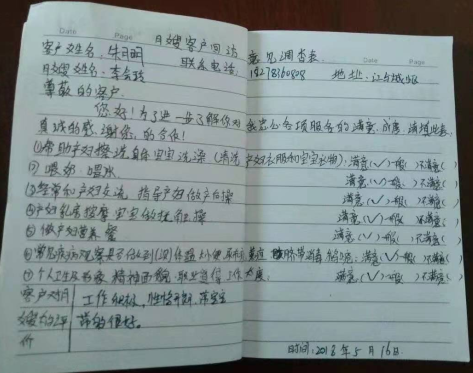 Date Page Date Page
月嫂客户回访意见调查表
客户姓名：朱明 联系电话 18278160808 地址：江与城
月嫂姓名：李会玲
尊敬的客户：
您好！为了进一步了解你对我公司各项服务的满意成度，请填此表，
真诚的感谢您的合作！
①帮助产妇擦洗身体宝宝洗澡（清洗产妇衣服和宝宝衣物）：满意（✓）一般（ ）不满意（ ）
② 喂奶、喂水 满意（✓）一般（ ）不满意（ ）
③经常和产妇交流 指导产妇做产后操 满意（✓）一般（ ）不满意（ ）
④产妇乳房按摩 宝宝的抚触操 满意（✓）一般（ ）不满意（ ）
⑤ 做产妇营养餐 满意（✓）一般（ ）不满意（ ）
⑥常见疾病观察 体温大小便 脐带消毒 满意（✓）一般（ ）不满意（ ）
⑦个人卫生及形象 精神面貌 职业道德 工作态度： 满意（✓）一般（ ）不满意（ ）
客户对月嫂的评价 工作积极，性格开朗，带宝宝
带的很好。
时间：2018年5月16日